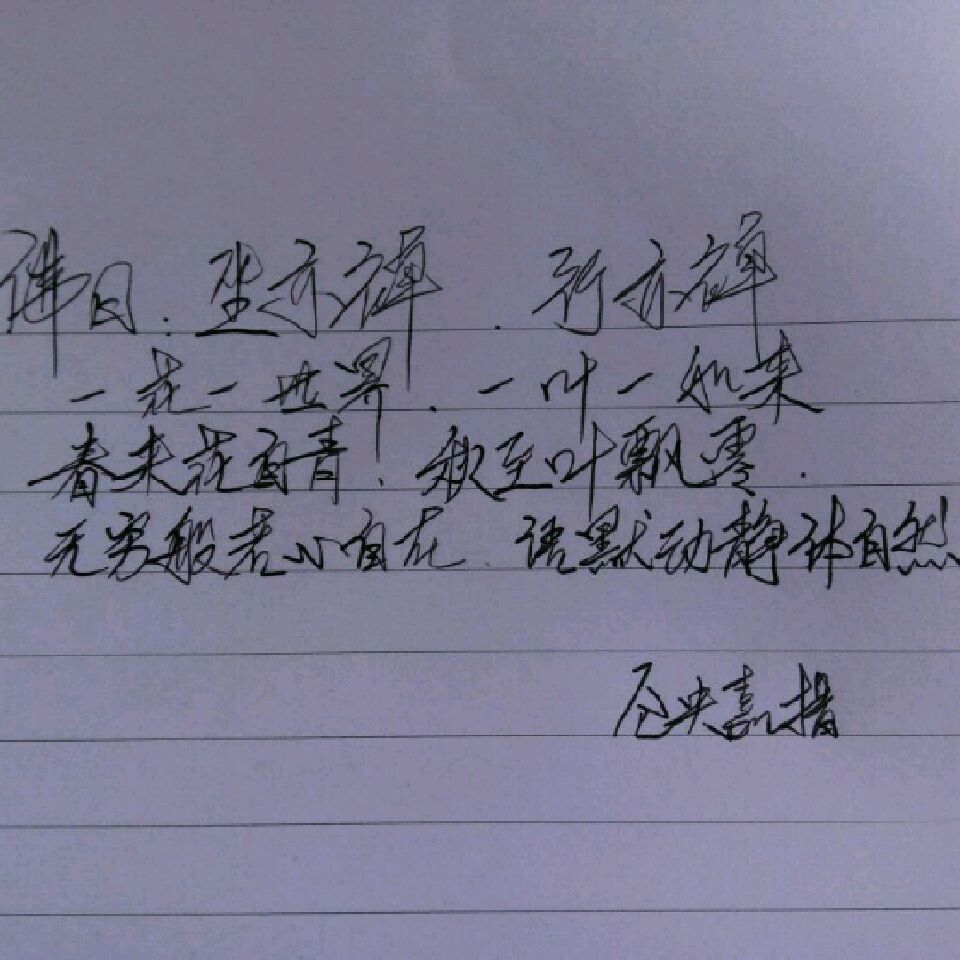 佛曰:坐亦禅.行亦禅
一花一世界.一叶一如来
春来花自青.秋至叶飘零.
无穷般若心自在.语默动静体自然
仓央嘉措